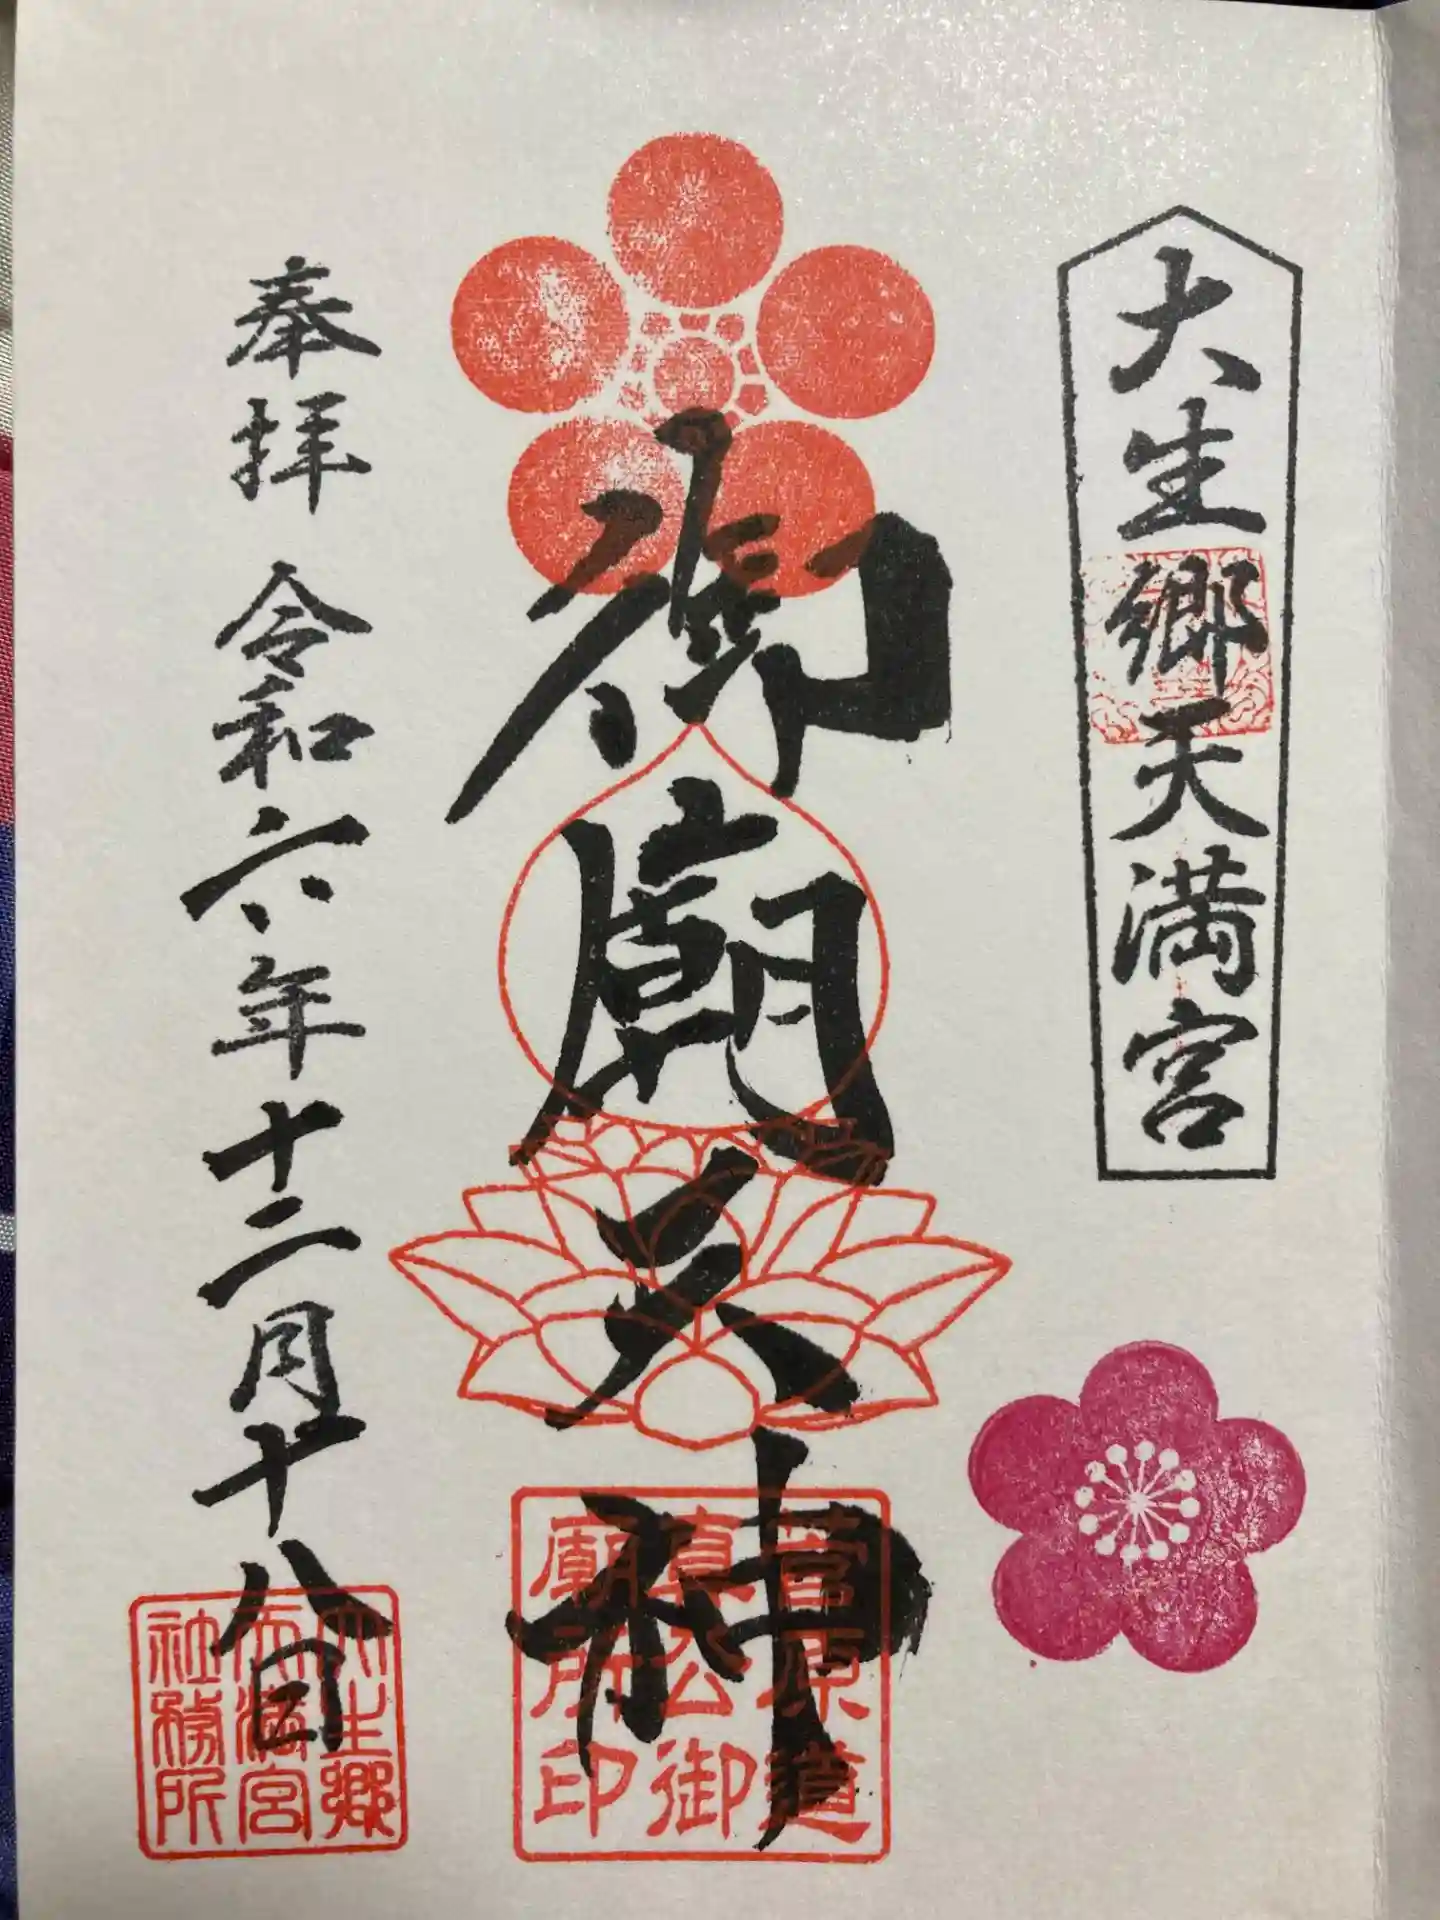 大生郷天満宮
御廟天神
菅原道
真公御
廟所印
奉拝 令和六年十二月十八日
大生郷
天満宮
社務所